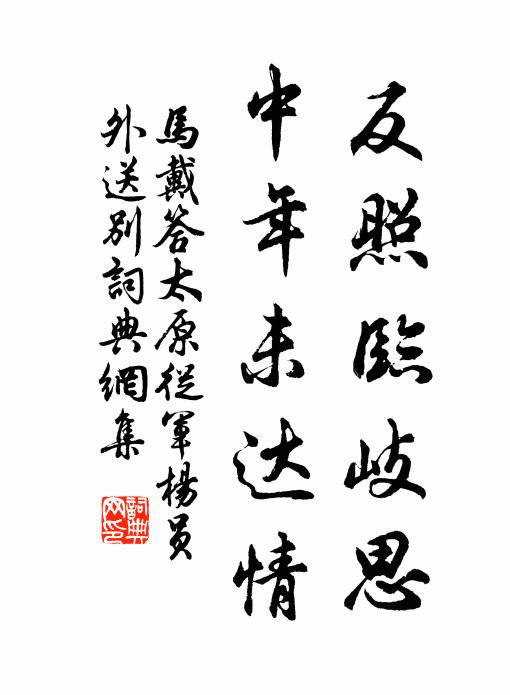 反照臨岐思
中年未达情
馬戴答太原從軍楊員
外送别詞典網集
詞典
网印